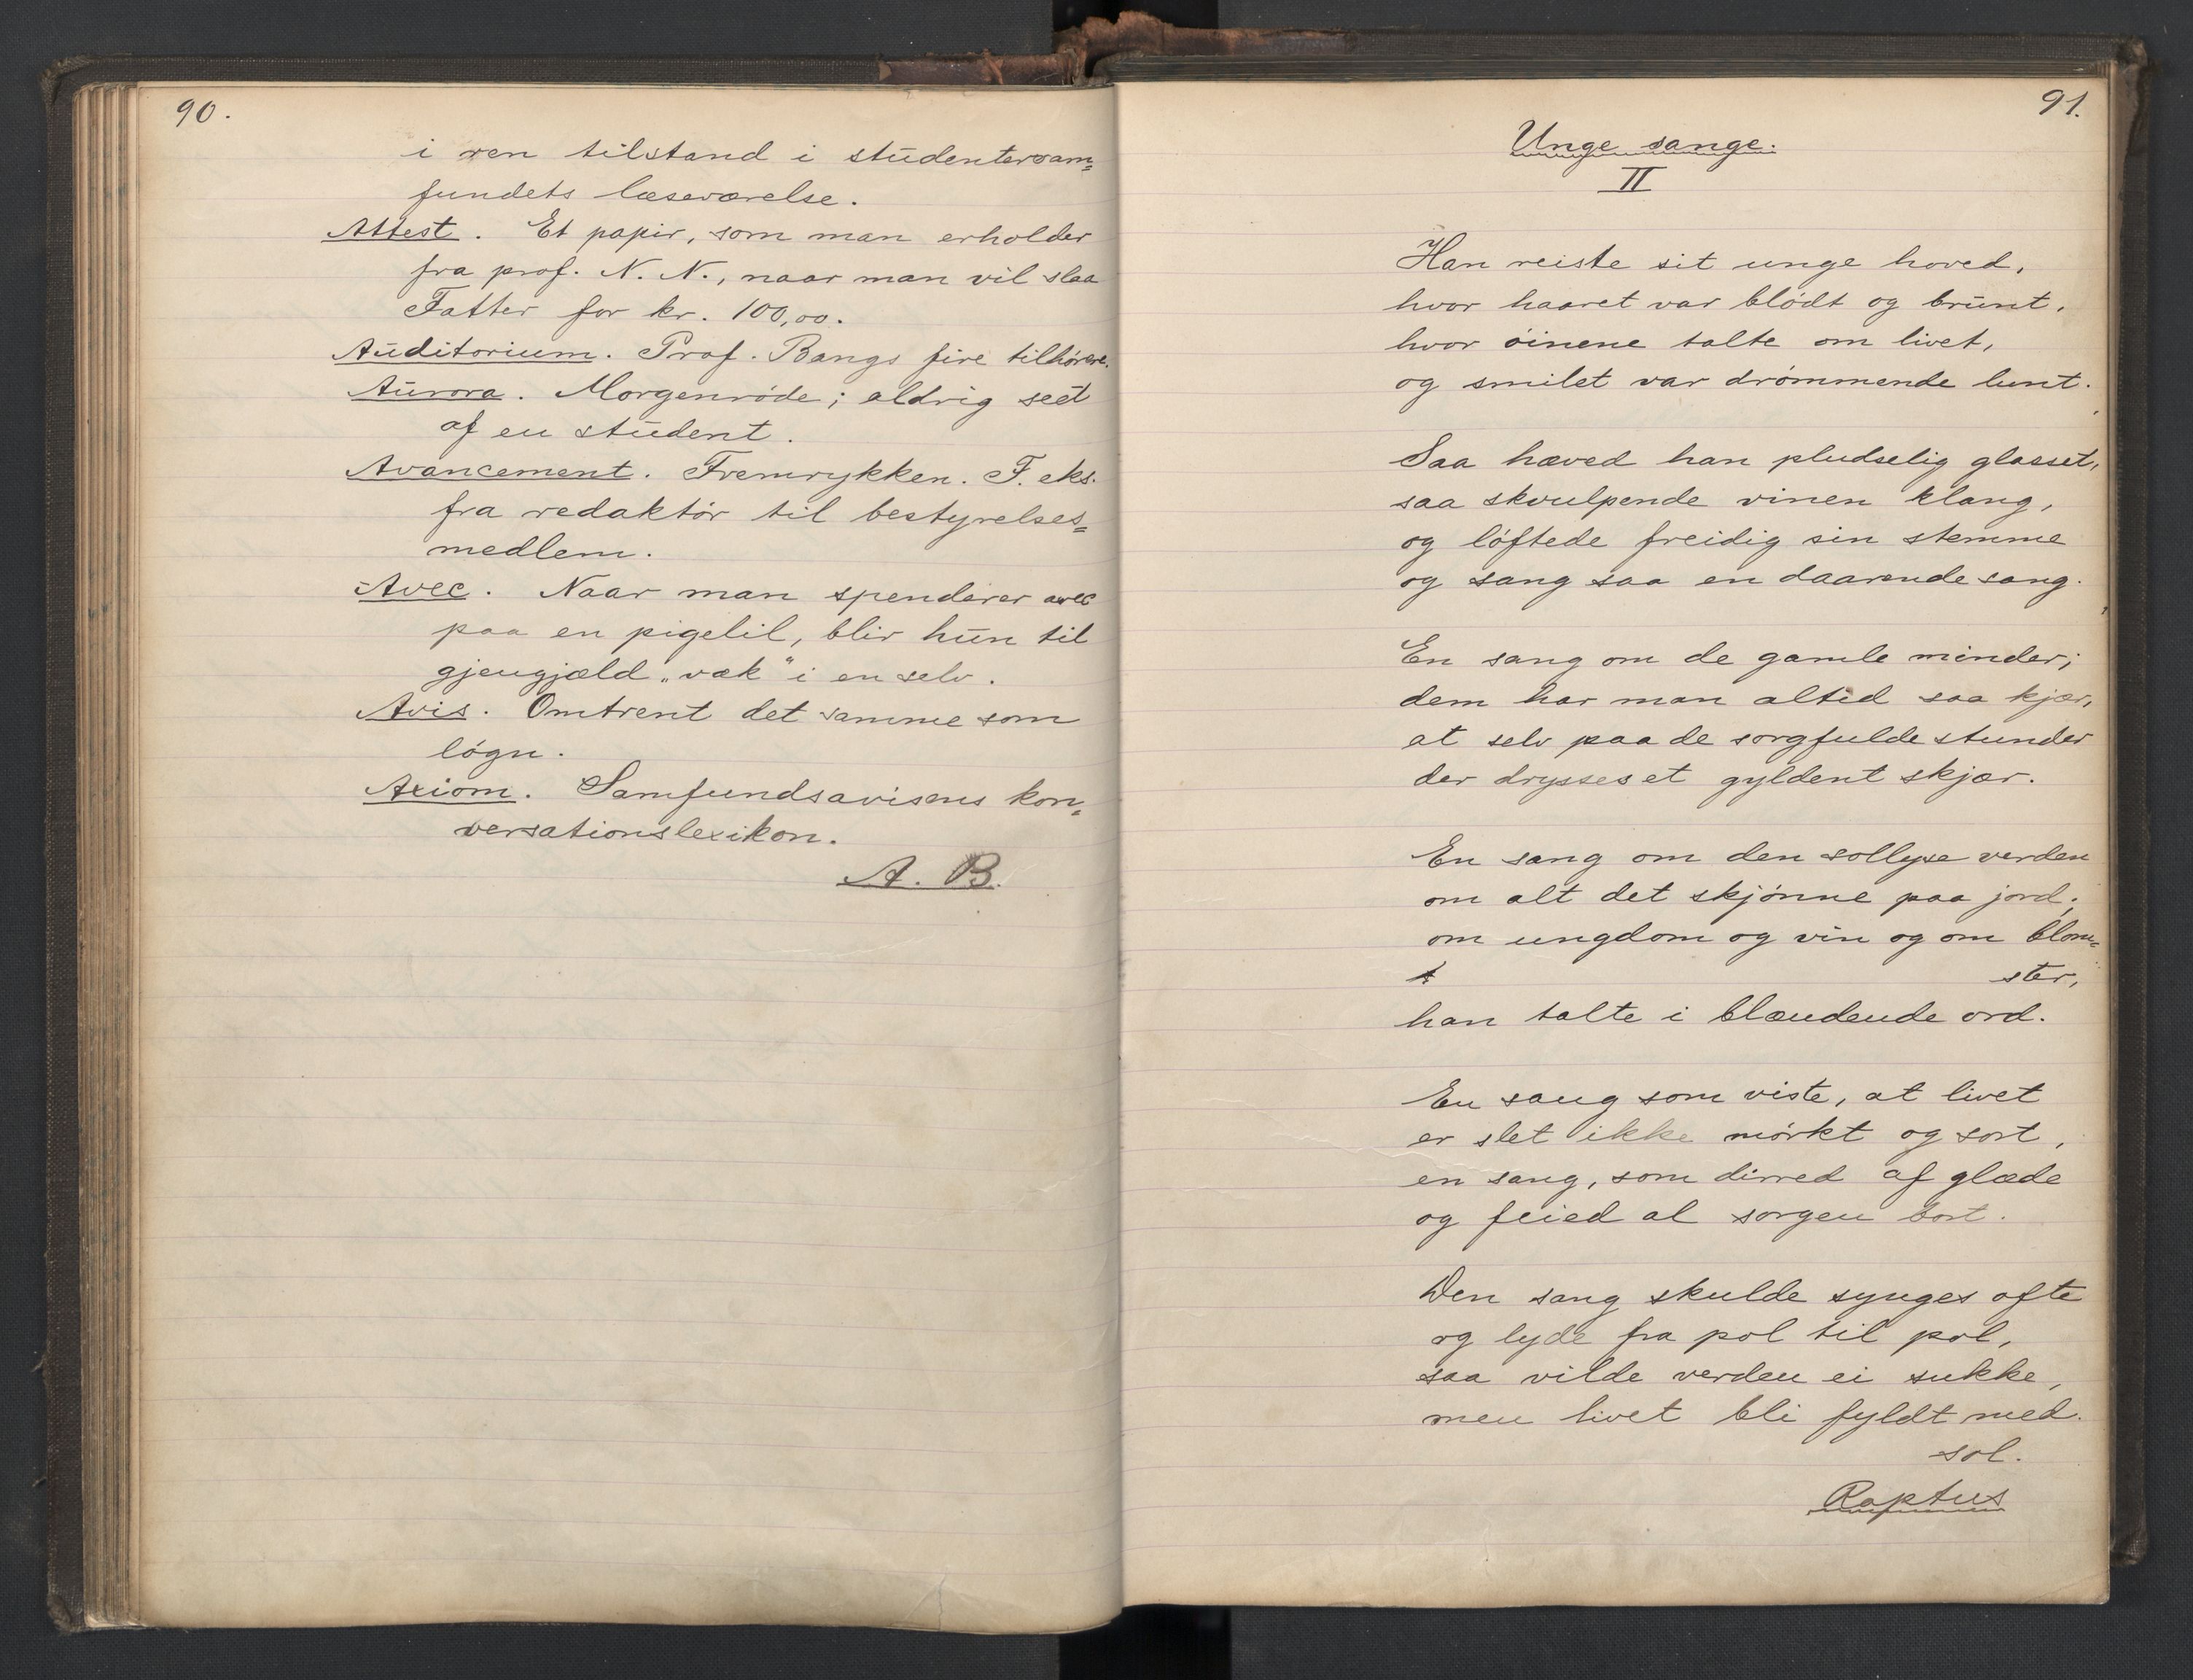 90.
i ren tilstand i studentersam=
fundets læseværelse.
Attest. Et papir, som man erholder
fra prof. N. N., naar man vil slaa
Fatter for kr. 100,00.
Auditorium. Prof. Bangs fire tilhörere.
Aurora. Morgenröde; aldrig seet
af en student.
Avancement. Fremrykken. F. eks.
fra redaktör til bestyrelses=
medlem.
Avec. Naar man spenderer avec
paa en pigelil, blir hun til
gjengjæld „væk" i en selv.
Avis. Omtrent det samme som
lögn.
Axiom. Samfundsavisens kon=
versationslexikon.
A. B.
91.
Unge sange.
II
Han reiste sit unge hoved,
hvor haaret var blödt og brunt,
hvor öinene talte om livet,
og smilet var drömmende lunt.
Saa hæved han pludselig glasset,
saa skvulpende vinen klang,
og löftede freidig sin stemme
og sang saa en daarende sang.
En sang om de gamle minder;
dem har man altid saa kjær,
at selv paa de sorgfulde stunder
der drysses et gyldent skjær.
En sang om den sollyse verden
om alt det skjönne paa jord;
om ungdom og vin og om blom=
ster,
han talte i blændende ord.
En sang som viste, at livet
er slet ikke mörkt og sort,
en sang, som dirred af glæde
og feied al sorgen bort.
Den sang skulde synges ofte
og lyde fra pol til pol,
saa vilde verden ei sukke,
men livet bli fyldt med
sol.
Raptus